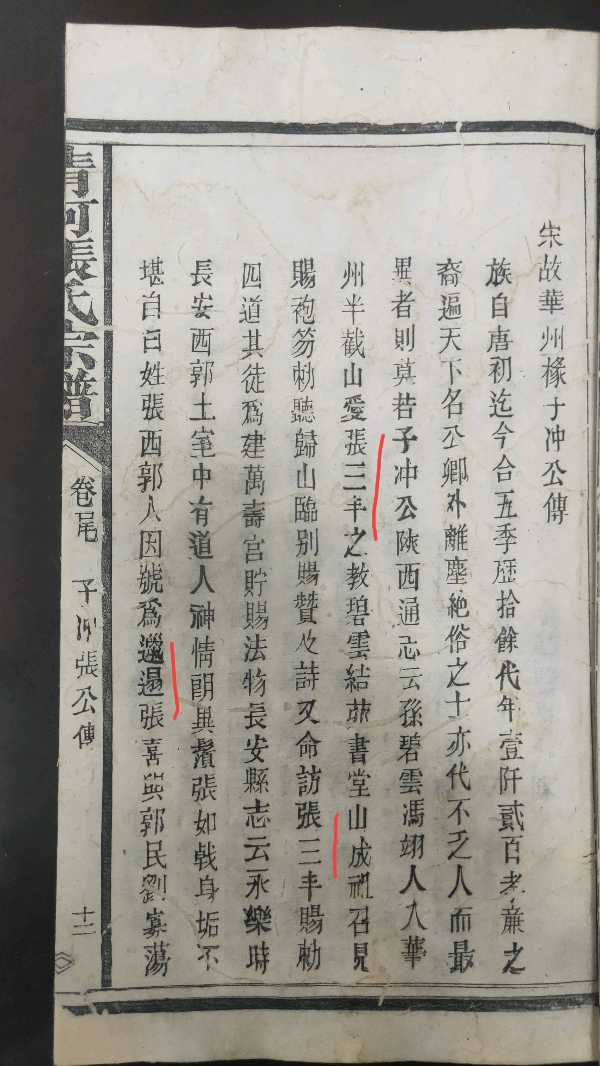 宋故華州椽子冲公傳
族自唐初迄今合五季歷拾餘代年壹阡貳百老亷之
裔遍天下名公卿外離塵絶俗之士亦代不乏人而最
異者則莫若子冲公陝西通志云孫碧雲馮翊人入華
州半截山愛張三丰之教碧雲結茆書堂山成祖召見
賜袍笏勅聽歸山臨别賜贊及詩又命訪張三丰賜勅
四道其徒爲建萬壽宫貯賜法物長安縣志云永樂時
長安西郭土室中有道人神情朗異鬚張如戟身垢不
堪自曰姓張西郭人因號爲邋遢張喜與郭民劉寡蕩
清河張氏宗譜
卷尾
子冲張公傳
十二